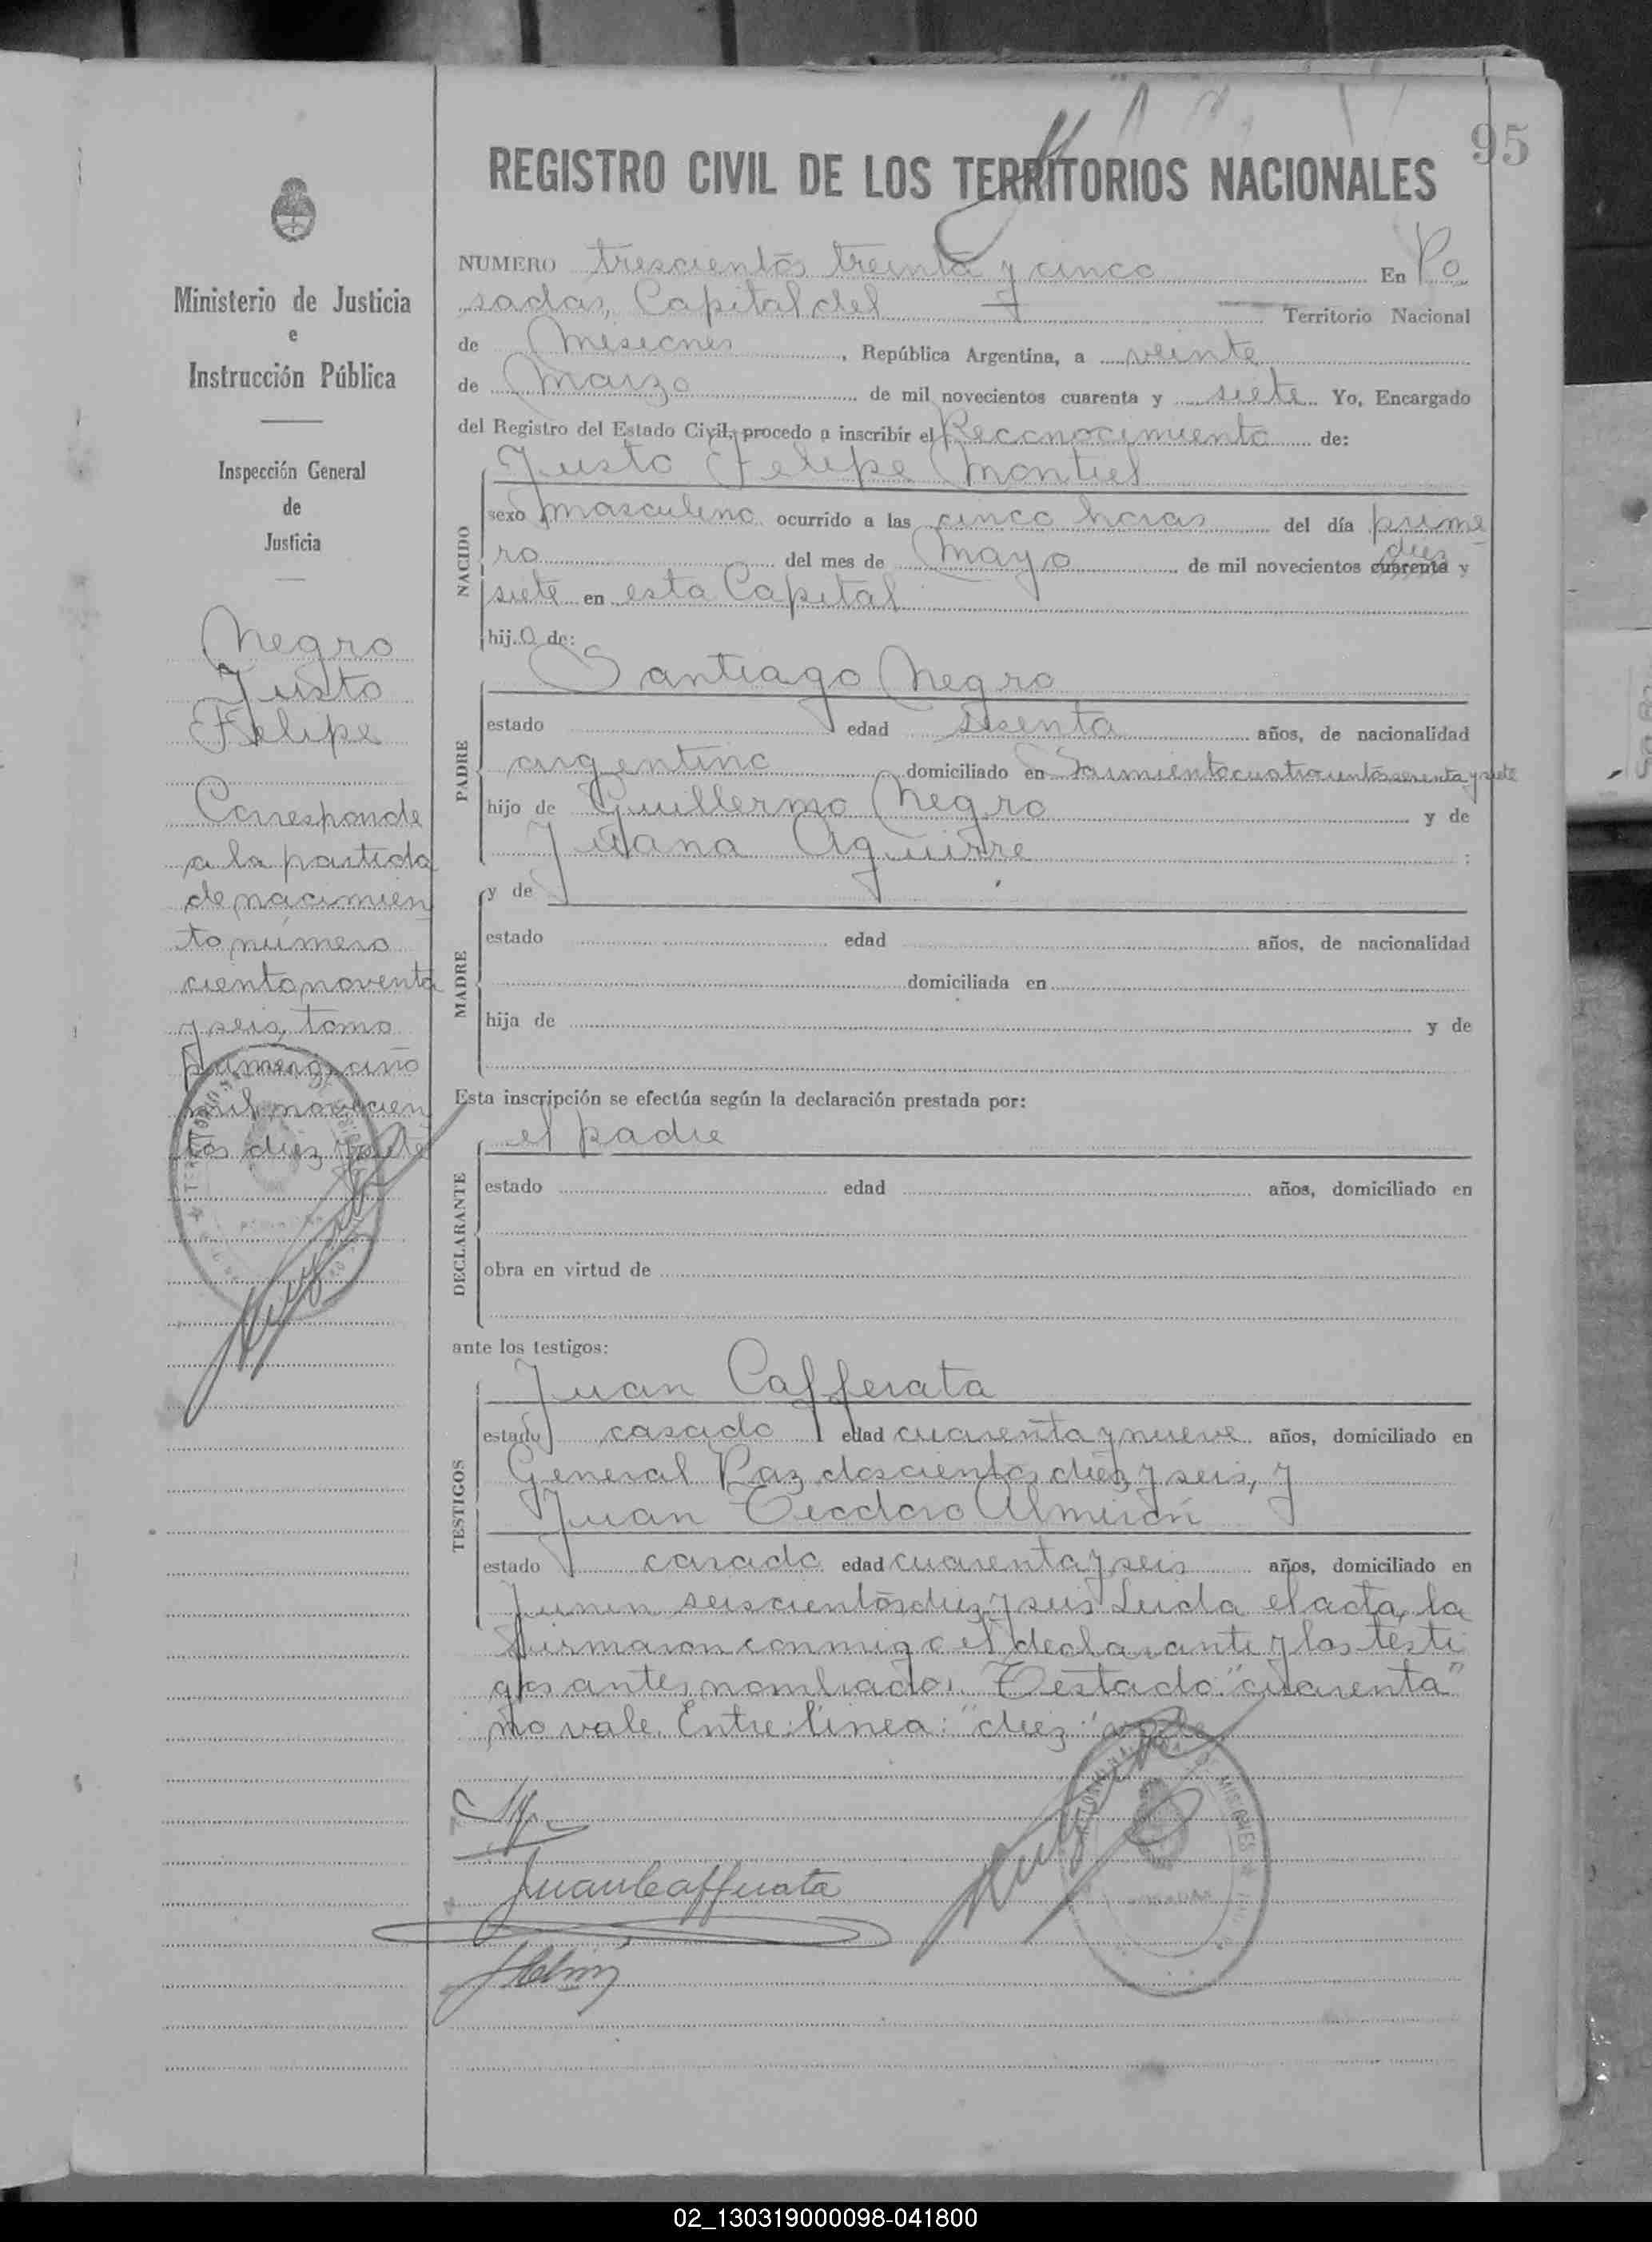 95
REGISTRO CIVIL DE LOS TERRITORIOS NACIONALES
NUMERO trescientos treinta y cinco En Po
sadas, Capital del Territorio Nacional
de Misiones, República Argentina, a veinte
de Marzo de mil novecientos cuarenta y siete Yo, Encargado
del Registro del Estado Civil, procedo a inscribir el Reconocimiento de:
Justo Felipe Montiel
NACIDO
sexo masculino ocurrido a las cinco horas del día prime
ro del mes de Mayo de mil novecientos cuarenta diez y
siete en esta Capital
hijo de:
Santiago Negro
PADRE
estado edad sesenta años, de nacionalidad
argentino domiciliado en Sarmiento cuatrocientos sesenta y siete
hijo de Guillermo Negro y de
Juana Aguirre ;
MADRE
y de
estado edad años, de nacionalidad
domiciliada en
hija de y de
Esta inscripción se efectúa según la declaración prestada por:
el padre
DECLARANTE
estado edad años, domiciliado en
obra en virtud de
ante los testigos:
Juan Cafferata
TESTIGOS
estado casado edad cuarenta y nueve años, domiciliado en
General Paz doscientos diez y seis, y
Juan Teodoro Almirón
estado casado edad cuarenta y seis años, domiciliado en
Junin seiscientos diez y seis Leida el acta, la
firmaron conmigo el declarante y los testi
gos antes nombrados. Testado: "cuarenta"
no vale. Entre línea: "diez" vale
Juan Cafferata
MISIONES
POSADAS
Ministerio de Justicia
e
Instrucción Pública
Inspección General
de
Justicia
Negro
Justo
Felipe
Corresponde
a la partida
de nacimien
to número
ciento noventa
y seis, tomo
primero, año
mil novecien
tos diez y siete
02_130319000098-041800